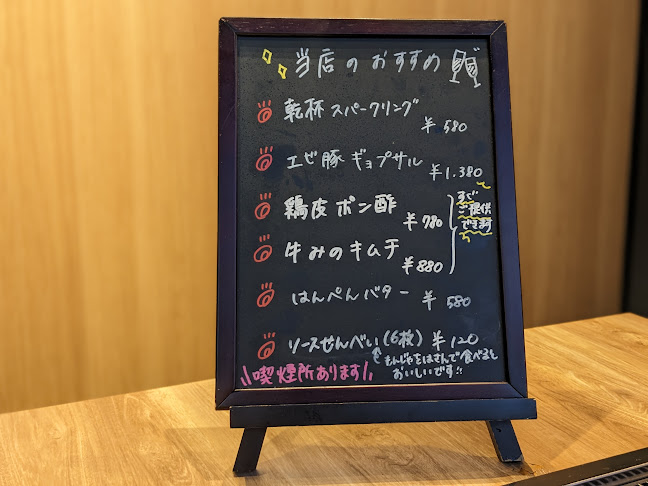 当店のおすすめ
乾杯スパークリング
¥580
エビ豚ギョプサル
¥1.380
鶏皮ポン酢
¥780
牛みのキムチ
¥880
すぐ
ご提供
できます
はんぺんバター ¥580
ソースせんべい(6枚) ¥120
もんじゃをはさんで食べると
おいしいです!!
\\喫煙所あります//